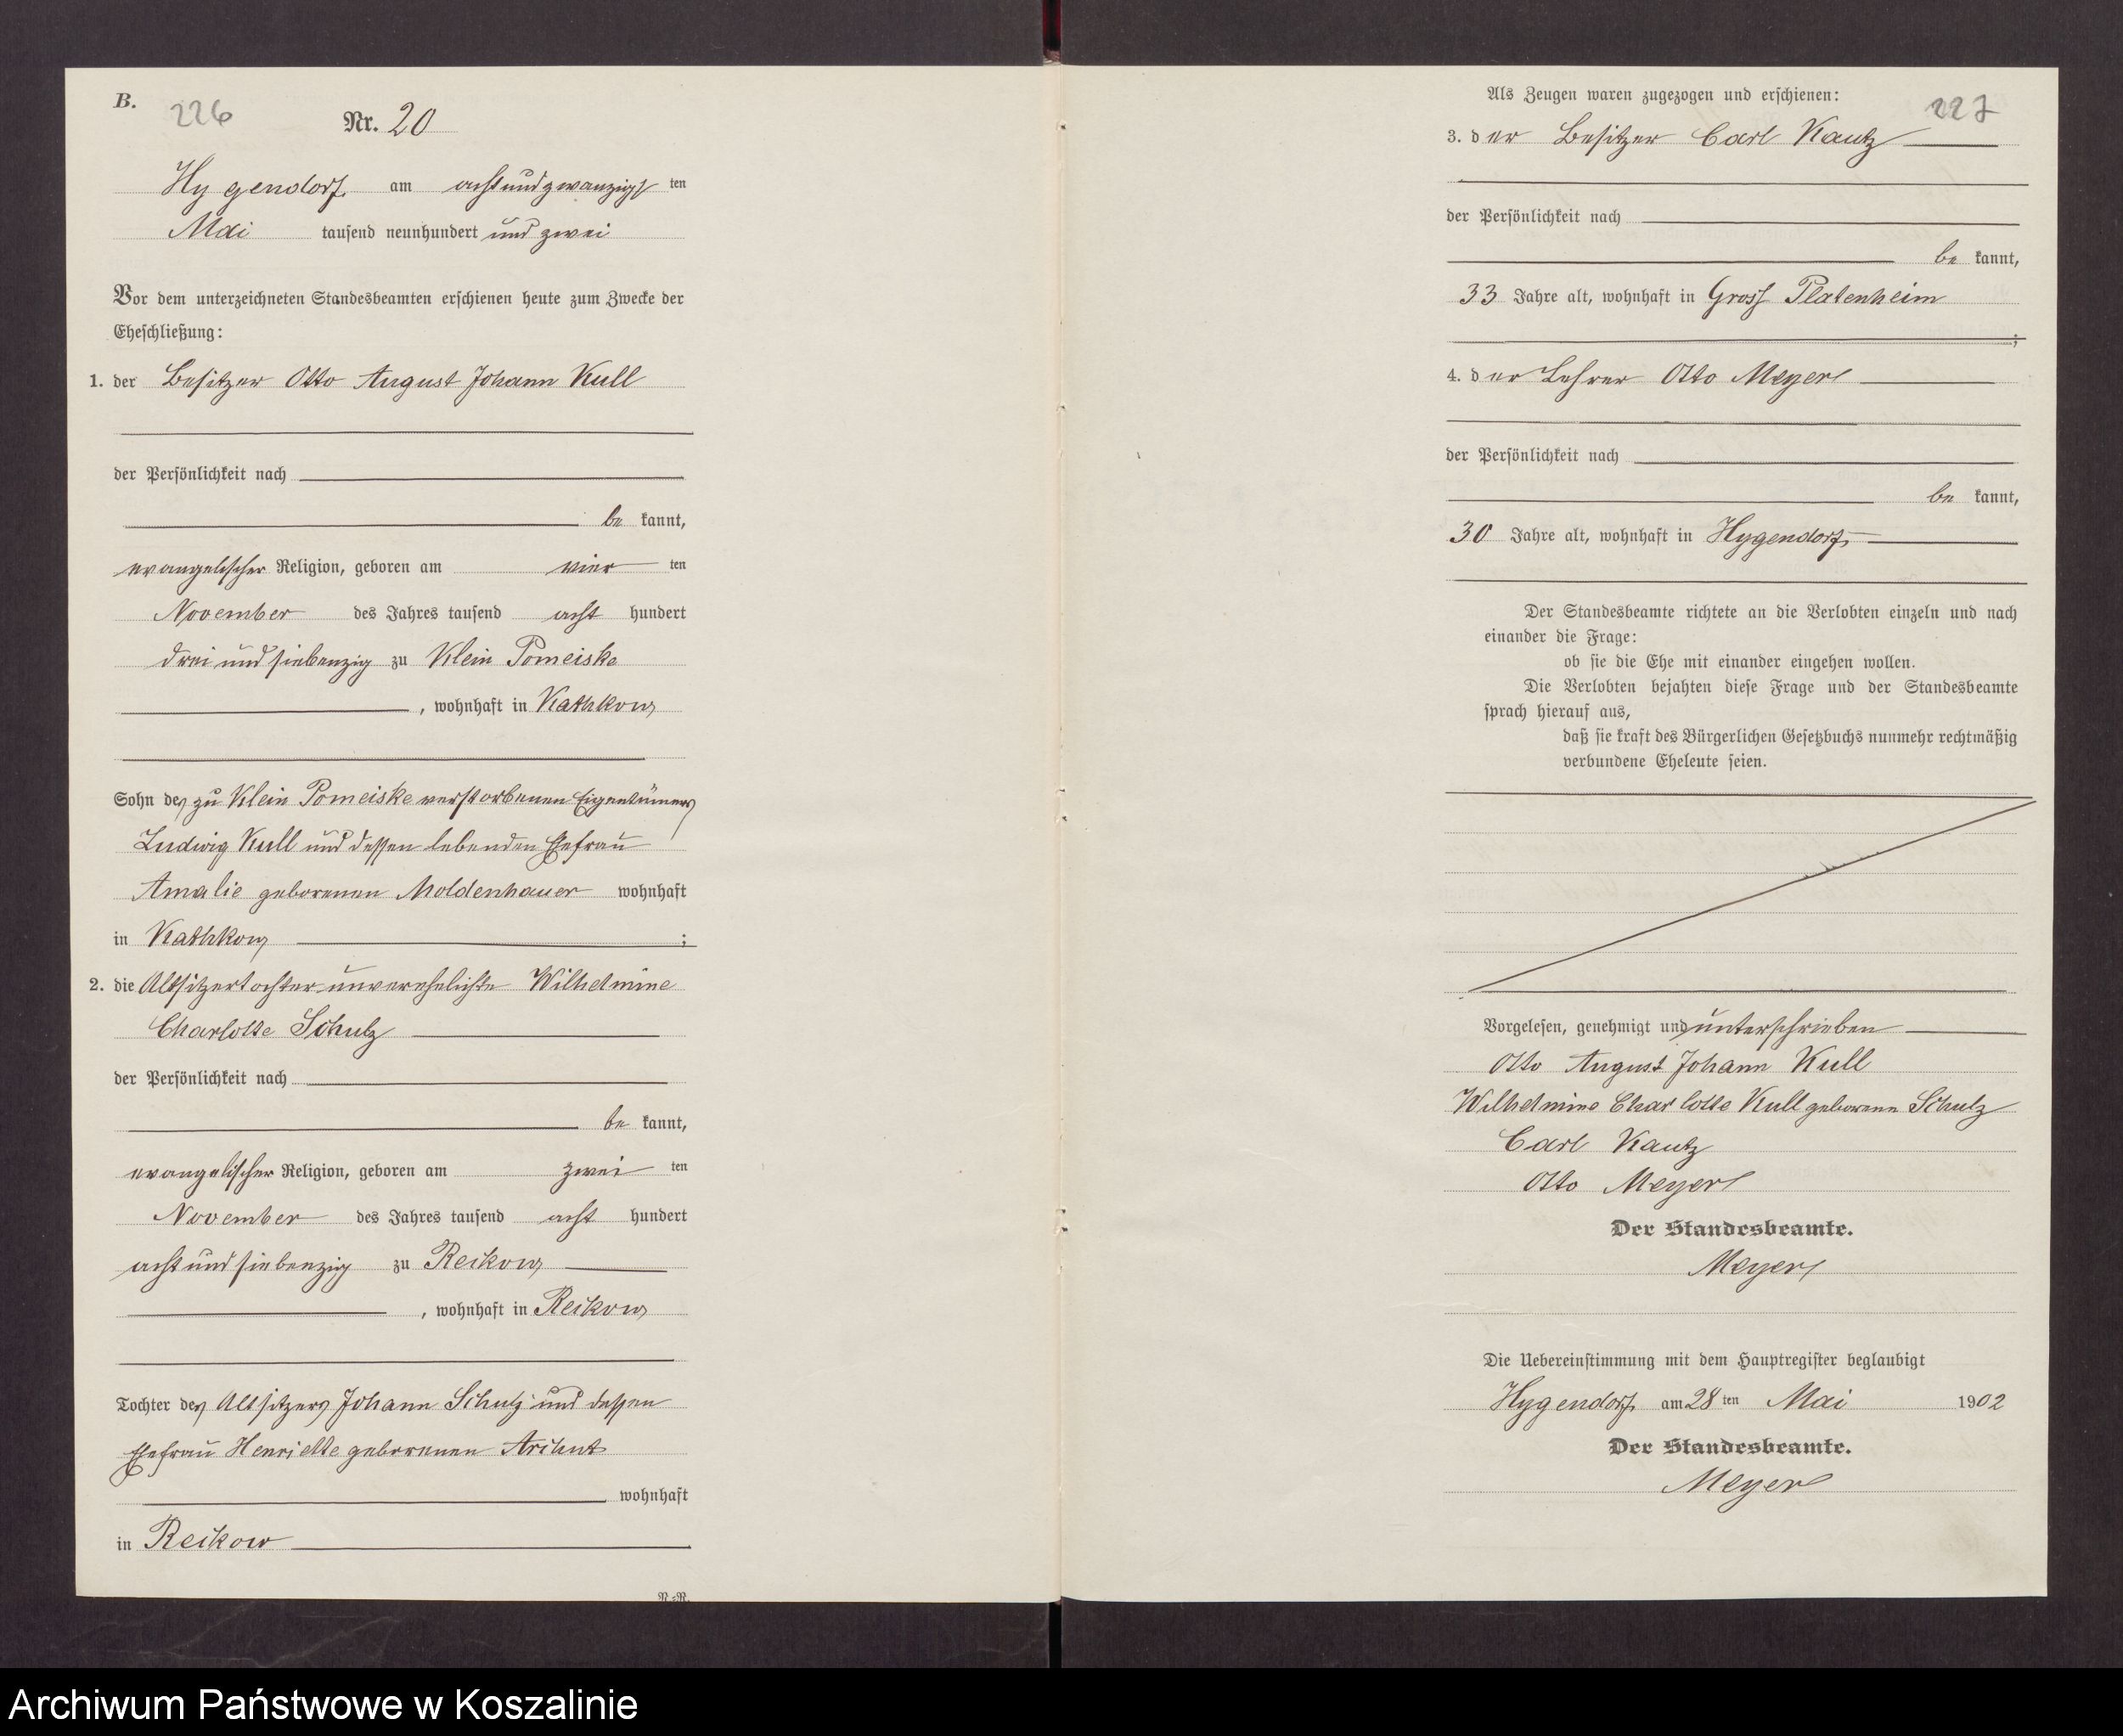 B.
226
Nr. 20
Hygendorf am achtundzwanzigsten
Mai tausend neunhundert und zwei
Vor dem unterzeichneten Standesbeamten erschienen heute zum Zwecke der
Eheschließung:
1. der Besitzer Otto August Johann Kull
der Persönlichkeit nach
be kannt,
evangelischer Religion, geboren am vier ten
November des Jahres tausend acht hundert
drei und siebenzig zu Klein Pomeiske
, wohnhaft in Kathkow
Sohn des zu Klein Pomeiske verstorbenen Eigentümers
Ludwig Kull und dessen lebenden Ehefrau
Amalie geborenen Moldenhauer wohnhaft
in Kathkow ;
2. die Altsitzertochter unverehelichte Wilhelmine
Charlotte Schulz
der Persönlichkeit nach
be kannt,
evangelischer Religion, geboren am zwei ten
November des Jahres tausend acht hundert
acht und siebenzig zu Reckow
, wohnhaft in Reckow
Tochter des Altsitzers Johann Schulz und dessen
Ehefrau Henriette geborenen
wohnhaft
in Reckow
N.=R.
227
Als Zeugen waren zugezogen und erschienen:
3. der Besitzer Carl Kautz
der Persönlichkeit nach
be kannt,
33 Jahre alt, wohnhaft in Gross Platenheim
;
4. der Lehrer Otto Meyer
der Persönlichkeit nach
be kannt,
30 Jahre alt, wohnhaft in Hygendorf
Der Standesbeamte richtete an die Verlobten einzeln und nach
einander die Frage:
ob sie die Ehe mit einander eingehen wollen.
Die Verlobten bejahten diese Frage und der Standesbeamte
sprach hierauf aus,
daß sie kraft des Bürgerlichen Gesetzbuchs nunmehr rechtmäßig
verbundene Eheleute seien.
Vorgelesen, genehmigt und unterschrieben
Otto August Johann Kull
Wilhelmine Charlotte Kull geborene Schulz
Carl Kautz
Otto Meyer
Der Standesbeamte.
Meyer
Die Uebereinstimmung mit dem Hauptregister beglaubigt
Hygendorf am 28 ten Mai 1902
Der Standesbeamte.
Meyer
Archiwum Państwowe w Koszalinie